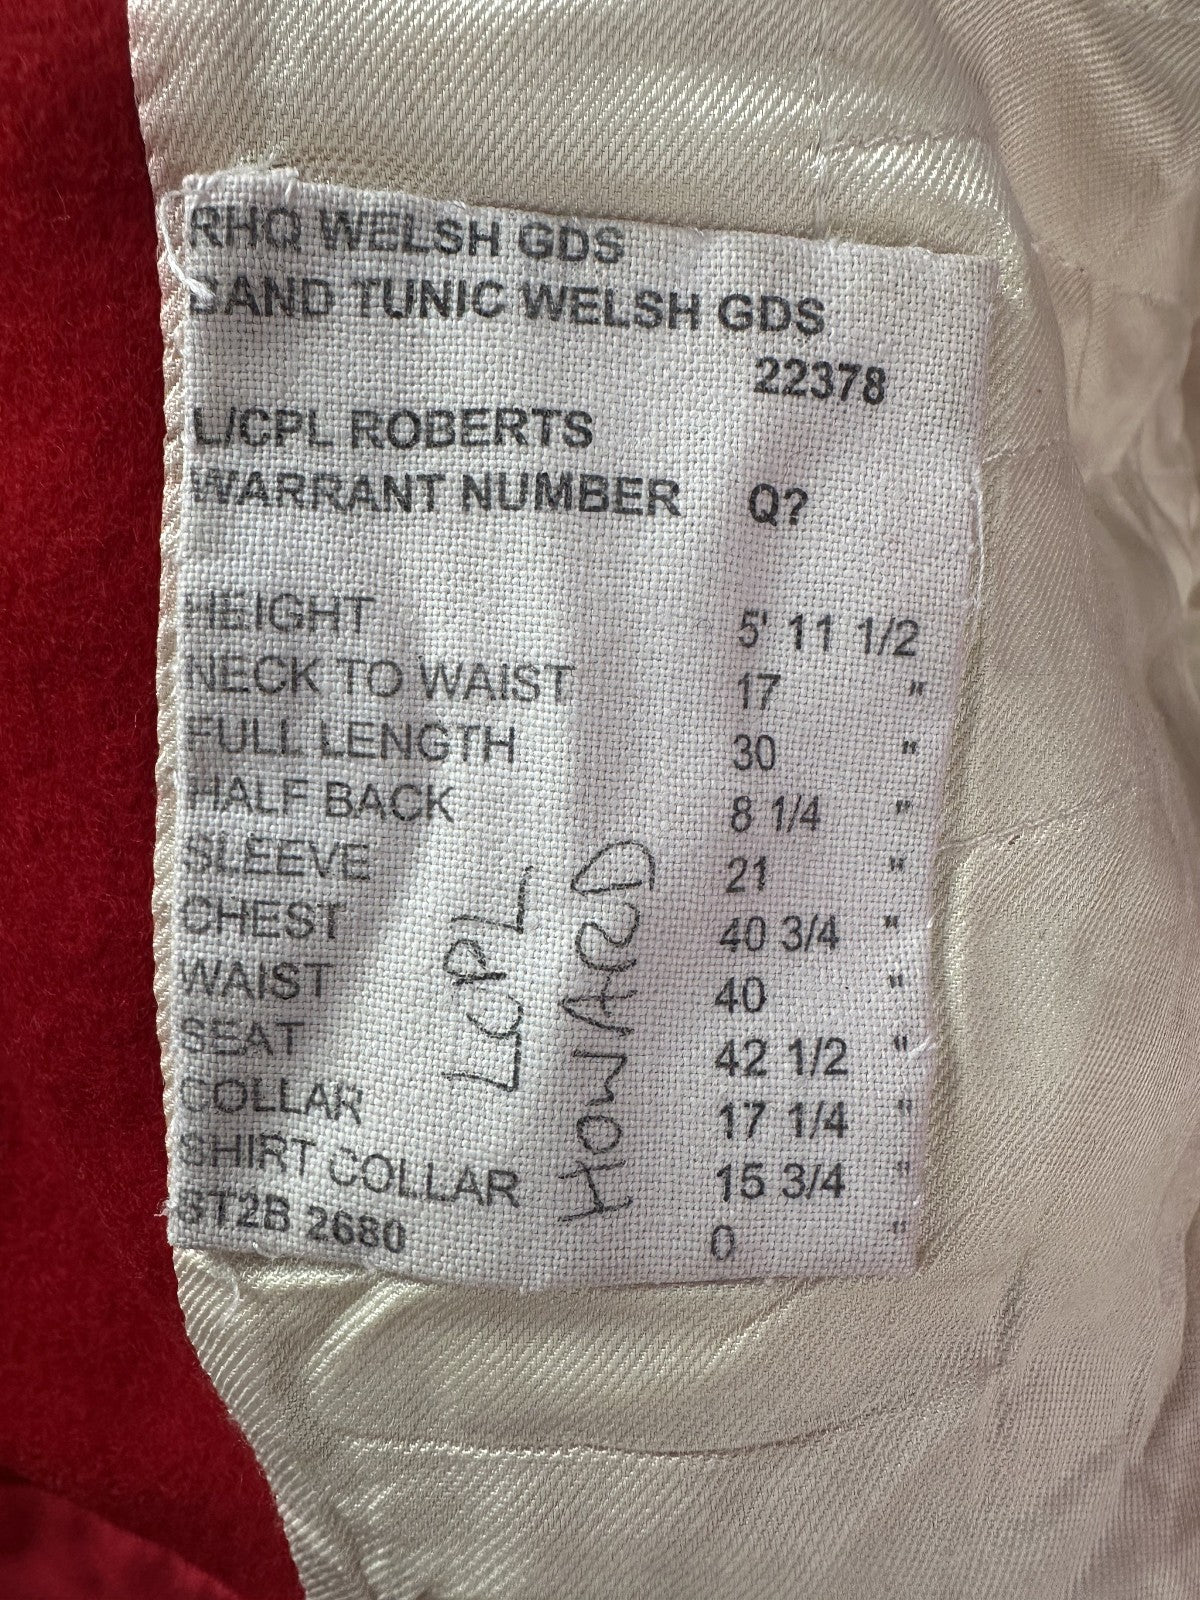 RHQ WELSH GDS
BAND TUNIC WELSH GDS
22378
L/CPL ROBERTS
WARRANT NUMBER Q?
HEIGHT 5' 11 1/2
NECK TO WAIST 17 "
FULL LENGTH 30 "
HALF BACK 8 1/4 "
SLEEVE 21 "
CHEST 40 3/4 "
WAIST 40 "
SEAT 42 1/2 "
COLLAR 17 1/4 "
SHIRT COLLAR 15 3/4 "
ST2B 2680 0 "
LCPL
HOWARD